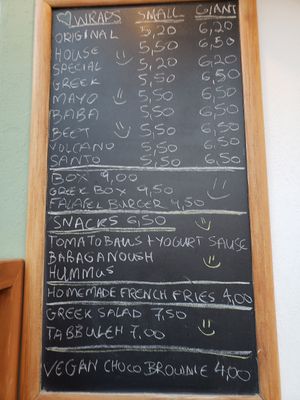 WRAPS SMALL GIANT
ORIGINAL 5,20 6,20
HOUSE 5,50 6,50
SPECIAL 5,20 6,20
GREEK 5,50 6,50
MAYO 5,50 6,50
BABA 5,50 6,50
BEET 5,50 6,50
VULCANO 5,50 6,50
SANTO 5,50 6,50
BOX 9,00
GREEK BOX 9,50
FALAFEL BURGER 4,50
SNACKS 6,50
TOMATOBALLS + YOGURT SAUSE
BABAGANOUSH
HUMMUS
HOMEMADE FRENCH FRIES 4,00
GREEK SALAD 7,50
TABBULEH 7,00
VEGAN CHOCO BROWNIE 4,00